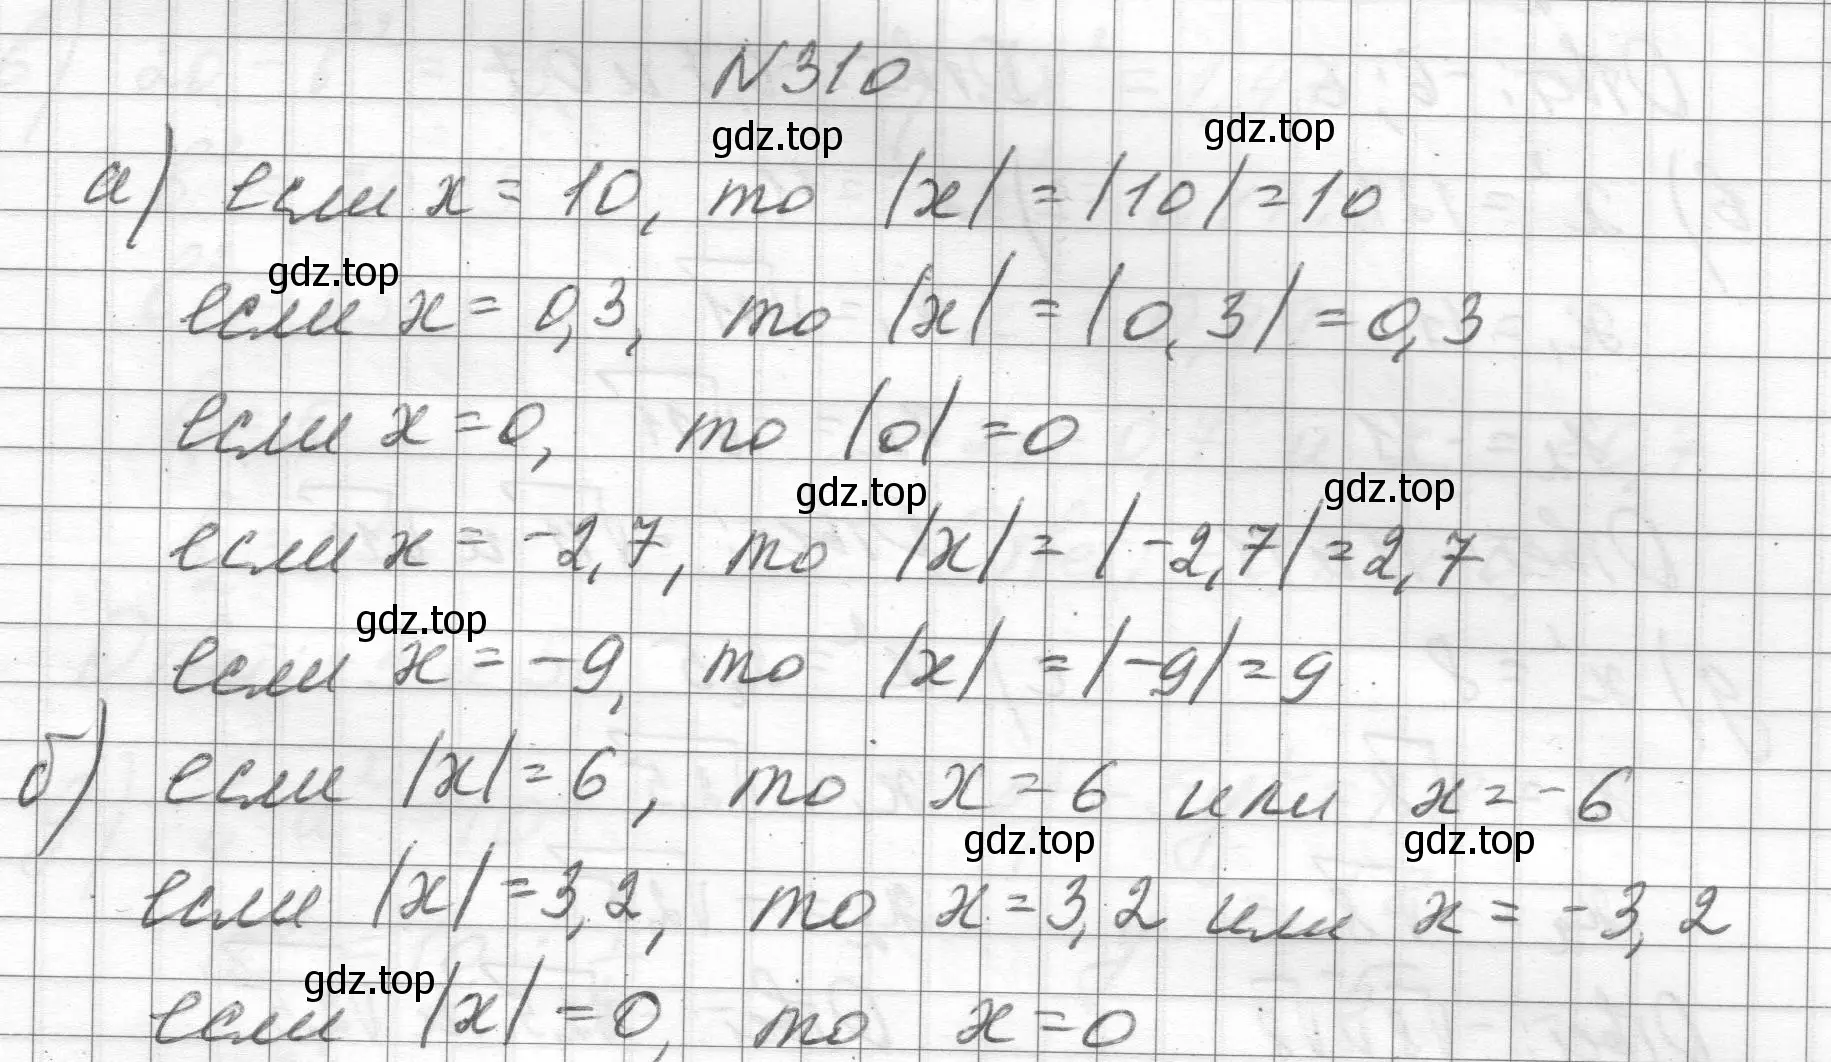 N310
gdz.top gdz.top
а) если x = 10, то |x| = |10| = 10
gdz.top
если x = 0,3, то |x| = |0,3| = 0,3
если x = 0, то |0| = 0
gdz.top gdz.top
если x = -2,7, то |x| = |-2,7| = 2,7
gdz.top
если x = -9, то |x| = |-9| = 9
б) если |x| = 6, то x = 6 или x = -6
gdz.top gdz.top
если |x| = 3,2, то x = 3,2 или x = -3,2
gdz.top
если |x| = 0, то x = 0